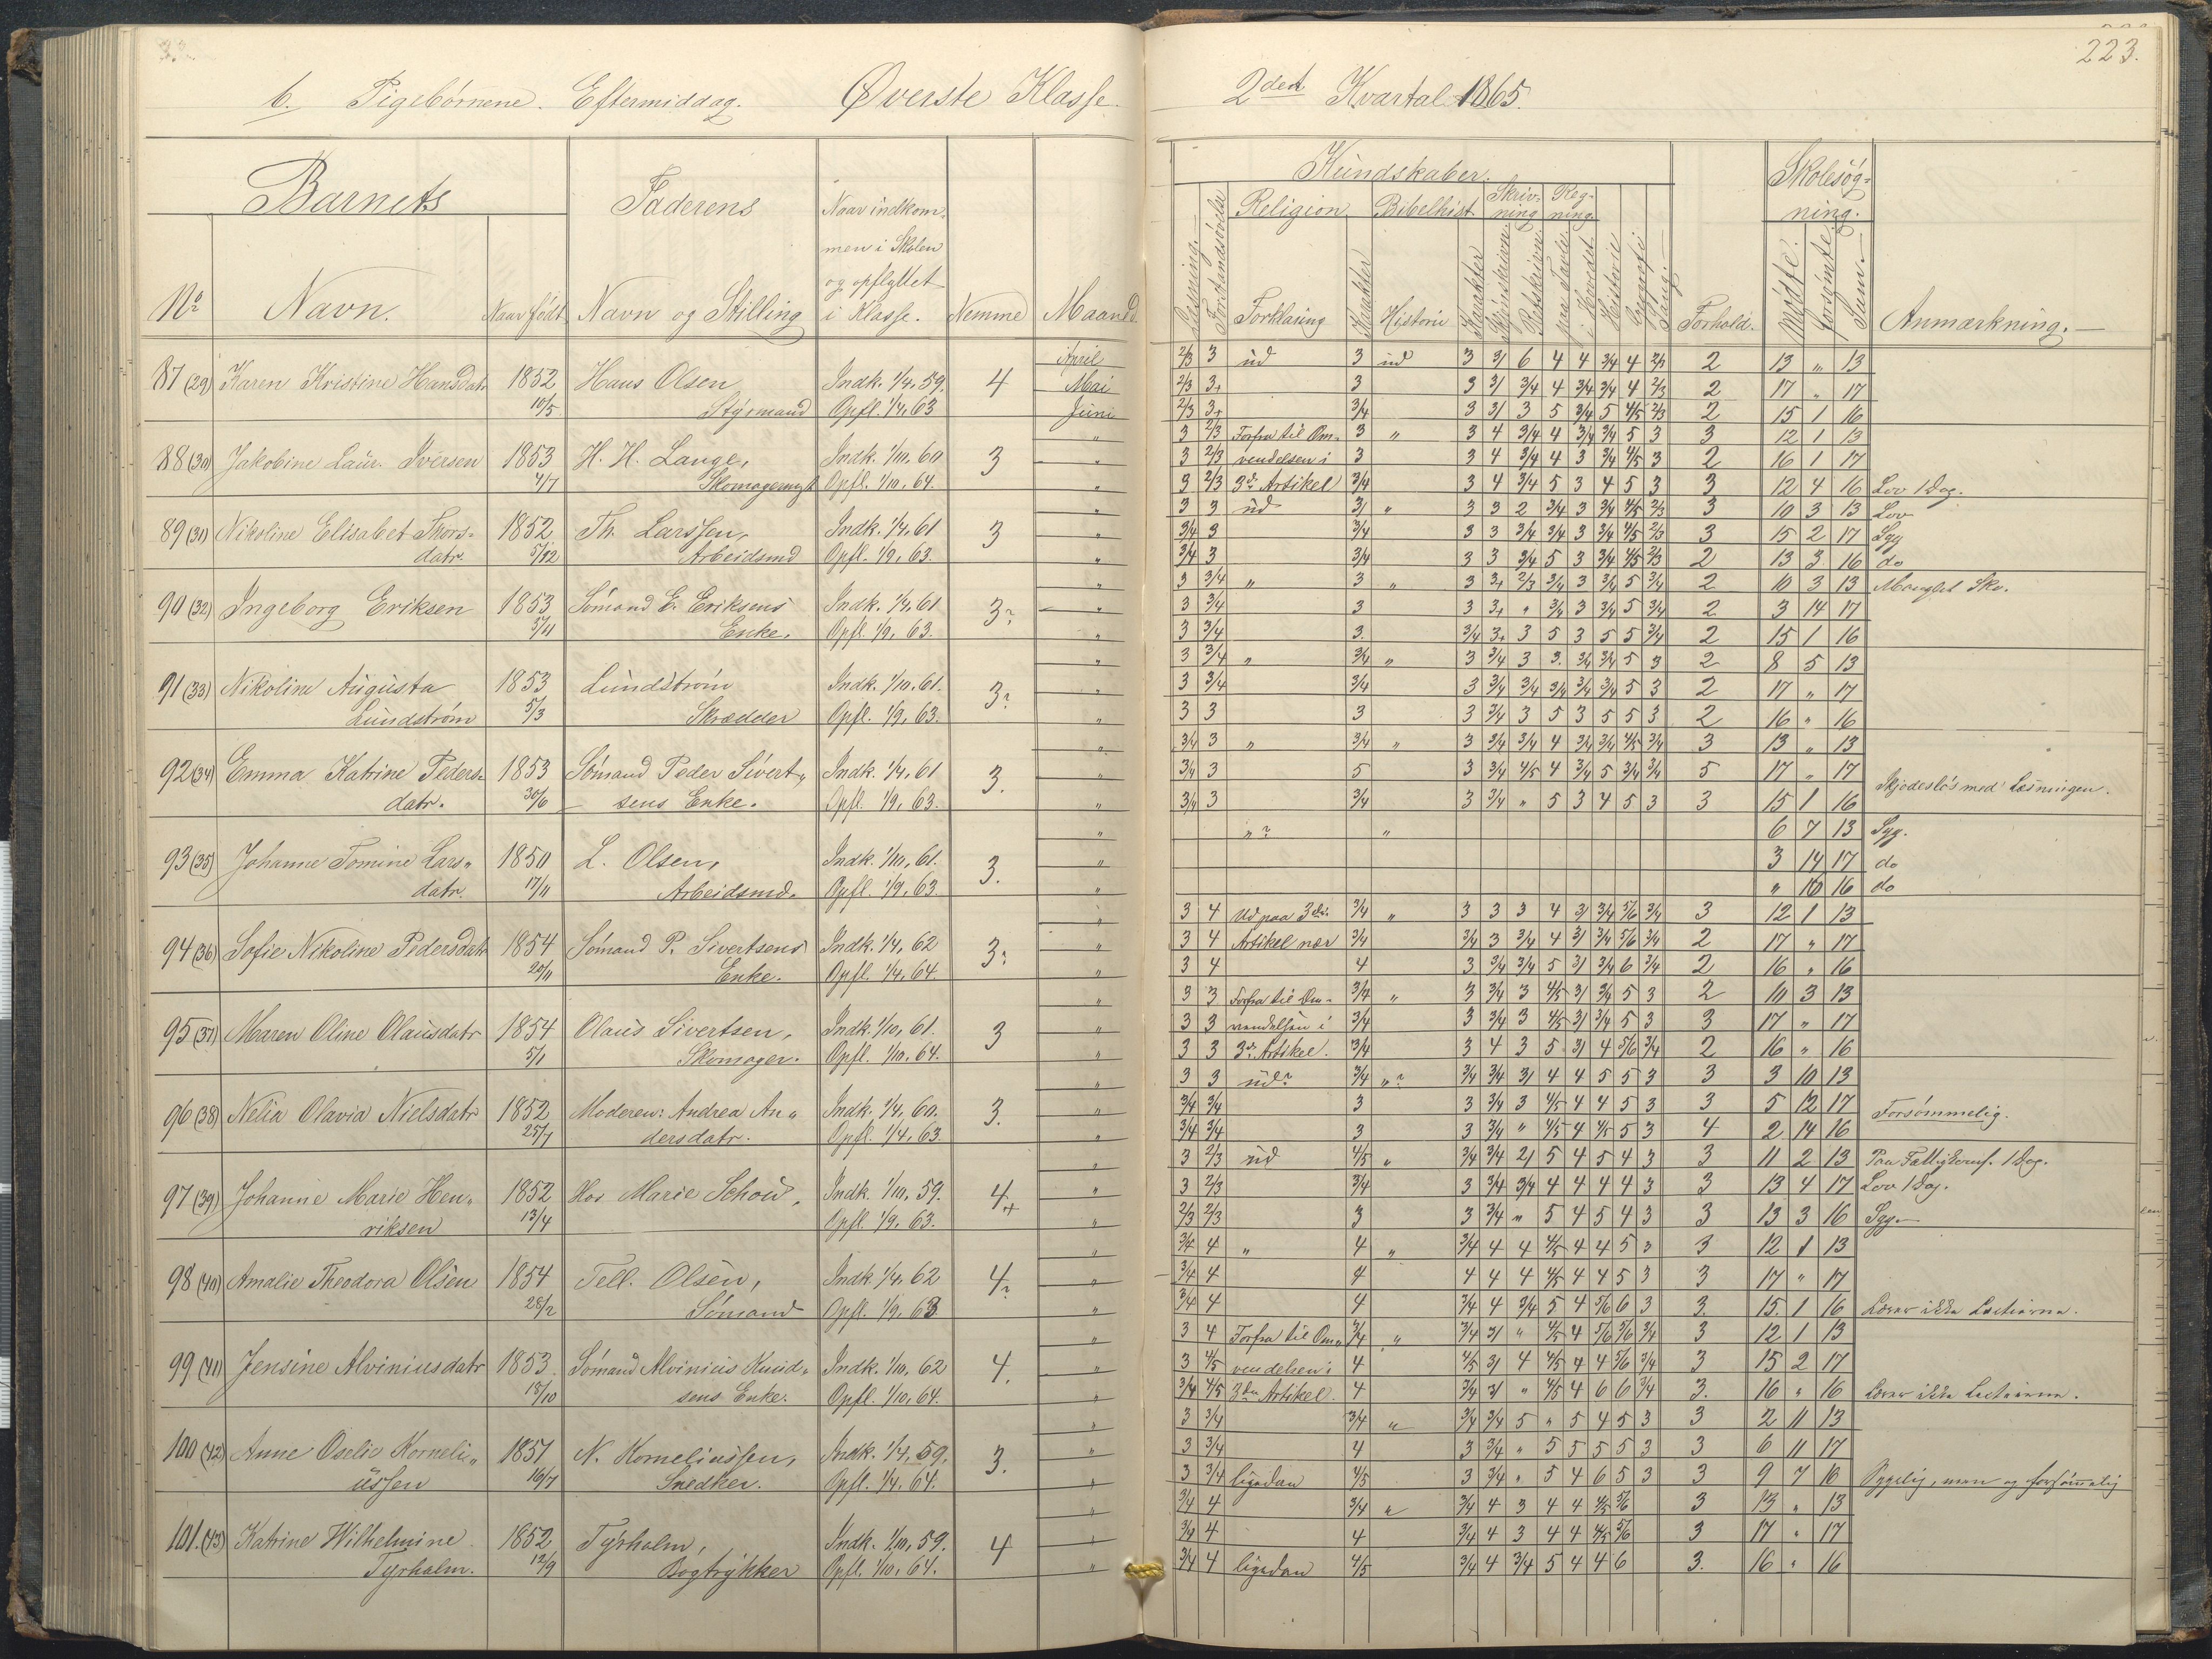 223.
b. Pigebørnene. Eftermiddag. Øverste Klasse.
2det Kvartal 1865.
Barnets
Faderens
Naar indkom-
men i Skolen
og opflyttet
i Klasse.
No Navn. Naar født Navn og Stilling Nemme Maaned
Kundskaber.
Skolesøg-
ning.
Læsning. Forstandsøvelse Religion Bibelhist. Skriv-
ning Reg-
ning
Forklaring Karakter Historie Karakter Skjønskrivn. Retskrivn. paa Tavle i Hovedet Historie Geografi Sang. Forhold. Mødte. Forsømte. Sum. Anmærkning.
87 (29) Karen Kristine Hansdatr 1852 10/5 Hans Olsen
Styrmand Indk. 1/4, 59.
Opfl. 1/4, 63 4
April 2/3 3 ud 3 ud 3 3/ 6 4 4 3/4 4 2/3 2 13 " 13
Mai 2/3 3+ 3 3 3/ 3/4 4 3/4 3/4 4 2/3 2 17 " 17
Juni 2/3 3+ 3/4 3 3/ 3 5 3/4 5 4/5 2/3 2 15 1 16
88 (30) Jakobine Laur. Iversen 1853 4/7 H. H. Lange,
Indk. 1/10, 60
Opfl. 1/10, 64. 3
" 3 2/3 Forfra til Om- 3 " 3 4 3/4 4 3/4 3/4 5 3 3 12 1 13
" 3 2/3 vendelsen i 3 3 4 3/4 4 3 3/4 4/5 3 2 16 1 17
" 3 2/3 3die Artikel 3/4 3 4 3/4 5 3 4 5 3 3 12 4 16 Lov 1 Dag.
89 (31) Nikoline Elisabet Thors-
datr. 1852 5/12 Th. Larssen,
Arbeidsmd Indk. 1/4, 61
Opfl. 1/9, 63. 3
" 3 3 ud 3/ " 3 3 2 3/4 3 3/4 4/5 2/3 3 10 3 13 Lov
" 3/4 3 3/4 3 3 3/4 3/4 3 3/4 4/5 2/3 3 15 2 17 Syg
" 3/4 3 3/4 3 3 3/4 5 3 3/4 4/5 2/3 2 13 3 16 do
90 (32) Ingeborg Eriksen 1853 5/11 Sømand E. Eriksens
Enke. Indk. 1/4, 61
Opfl. 1/9, 63. 3?
" 3 3/4 " 3 " 3 3+ 2/3 3/4 3 3/4 5 3/4 2 10 3 13 Manglet Sko.
" 3 3/4 3 3 3+ " 3/4 3 3/4 5 3/4 2 3 14 17
" 3 3/4 3. 3/4 3+ 3 5 3 5 5 3/4 2 15 1 16
91 (33) Nikoline Augusta
Lundstrøm 1853 5/3 Lundstrøm
Skrædder Indk. 1/10, 61.
Opfl. 1/9, 63. 3?
" 3 3/4 " 3/4 " 3 3/4 3 3. 3/4 3/4 5 3 2 8 5 13
" 3 3/4 3/4 3 3/4 3/4 3/4 3/4 3/4 5 3 2 17 " 17
" 3 3 3 3 3/4 3 5 3 5 5 3 2 16 " 16
92 (34) Emma Katrine Peders-
datr. 1853 30/6 Sømand Peder Sivert-
sens Enke. Indk. 1/4, 61
Opfl. 1/9, 63. 3.
" 3/4 3 " 3/4 " 3 3/4 3/4 4 3/4 3/4 4/5 3/4 3 13 " 13
" 3/4 3 5 3 3/4 4/5 4 3/4 5 3/4 3/4 5 17 " 17
" 3/4 3 3/4 3 3/4 " 5 3 4 5 3 3 15 1 16 Skjødesløs med Læsningen.
93 (35) Johanne Tomine Lars-
datr. 1850 17/11 L. Olsen,
Arbeidsmd. Indk. 1/10, 61.
Opfl. 1/9, 63. 3.
" "? " 6 7 13 Syg.
" 3 14 17 do
" " 16 16 do
94 (36) Sofie Nikoline Pedersdatr 1854 20/11 Sømand P. Sivertsens
Enke. Indk. 1/4, 62
Opfl. 1/4, 64. 3?
" 3 4 Ud paa 3die 3/4 " 3 3 3 4 3/ 3/4 5/6 3/4 3 12 1 13
" 3 4 Artikel nær 3/4 3/4 3 3/4 4 3/ 3/4 5/6 3/4 2 17 " 17
" 3 4 4 3 3/4 3/4 5 3/ 3/4 6 3/4 2 16 " 16
95 (37) Maren Oline Olausdatr 1854 5/1 Olaus Sivertsen,
Skomager. Indk. 1/10, 61.
Opfl. 1/10, 64. 3
" 3 3 Forfra til Om- 3/4 " 3 3/4 3 4/5 3/ 3/4 5 3 2 10 3 13
" 3 3 vendelsen i 3/4 3 3/4 3 4/5 3/ 3/4 5 3 3 17 " 17
" 3 3 3die Artikel. 3/4 3 4 3 5 3/ 4 5/6 3/4 2 16 " 16
96 (38) Nelia Olavia Nielsdatr 1852 25/7 Moderen: Andrea An-
dersdatr. Indk. 1/4, 60.
Opfl. 1/4, 63. 3.
" 3 3 ud? 3/4 "? 3/4 3/4 3/ 4 4 5 5 3 3 3 10 13
" 3/4 3/4 3 3 3/4 3 4/5 4 4 5 3 3 5 12 17 Forsømmelig.
" 3/4 3/4 3 3 3/4 " 4/5 4 4/5 5 3 4 2 14 16
97 (39) Johanne Marie Hen-
riksen 1852 13/4 Hos Marie Schou, Indk. 1/10, 59.
Opfl. 1/9, 63. 4+
" 3 2/3 ud 4/5 " 3/4 3/4 2/ 5 4 5 4 3 3 11 2 13 Paa 1 Dag.
" 3 2/3 3/4 3 3/4 3/4 4 4 4 4 3 3 13 4 17 Lov 1 Dag.
" 2/3 2/3 3 3 3/4 " 5 4 5 4 3 3 13 3 16 Syg
98 (40) Amalie Theodora Olsen 1854 28/2 Tell. Olsen,
Sømand Indk. 1/4, 62
Opfl. 1/9, 63 4?
" 3/4 4 " 4 " 3/4 4 4 4/5 4 4 5 3 3 12 1 13
" 3/4 4 4 4 4 4 4/5 4 4 5 3 3 17 " 17
" 3/4 4 4 3/4 4 3/4 5 4 5/6 6 3 3. 15. 1 16 Lærer ikke Lectierne.
99 (41) Jensine Alviniusdatr 1853 18/10 Sømand Alvinius Knud-
sens Enke. Indk. 1/10, 62
Opfl. 1/10, 64. 4.
" 3 4 Forfra til Om- 3/4 " 3/4 3/ " 4/5 4 5/6 5/6 3/4 3 12 1 13
" 3 4/5 vendelsen i 4 4/5 3/ 4 4/5 4 4 5/6 3/4 3 15 2 17
" 3/4 4/5 3die Artikel. 4 3/4 3/ " 4/5 4 6 6 3/4 3. 16 " 16 Lærer ikke Lectierne.
100 (42) Anne Oselie Korneli-
ussen 1851 16/7 N. Korneliussen,
Snedker. Indk. 1/4, 59.
Opfl. 1/4, 64. 3.
" 3 3/4 3/4 " 3/4 3/4 5 " 5 4 5 3 3 2 11 13
" 3 3/4 4 3 3/4 " 5 5 5 5 3 3 6 11 17
" 3 3/4 ligedan 4/5 3 3/4 " 5 4 6 5 3 3 9 7 16 Sygelig, men og forsømmelig
101. (43) Katrine Wilhelmine
Tyrholm. 1852 12/9 Tyrholm,
Bogtrykker Indk. 1/10, 59.
Opfl. 1/10, 64. 4
" 3/4 4 3/4 " 3/4 4 3 4 4 4/5 5/6 3 13 " 13
" 3/4 4 4 3/4 4 3 4 4 4/5 5/6 3 17 " 17
" 3/4 4 ligedan 4/5 3/4 4 3/4 5 4 4 6 3. 16 " 16